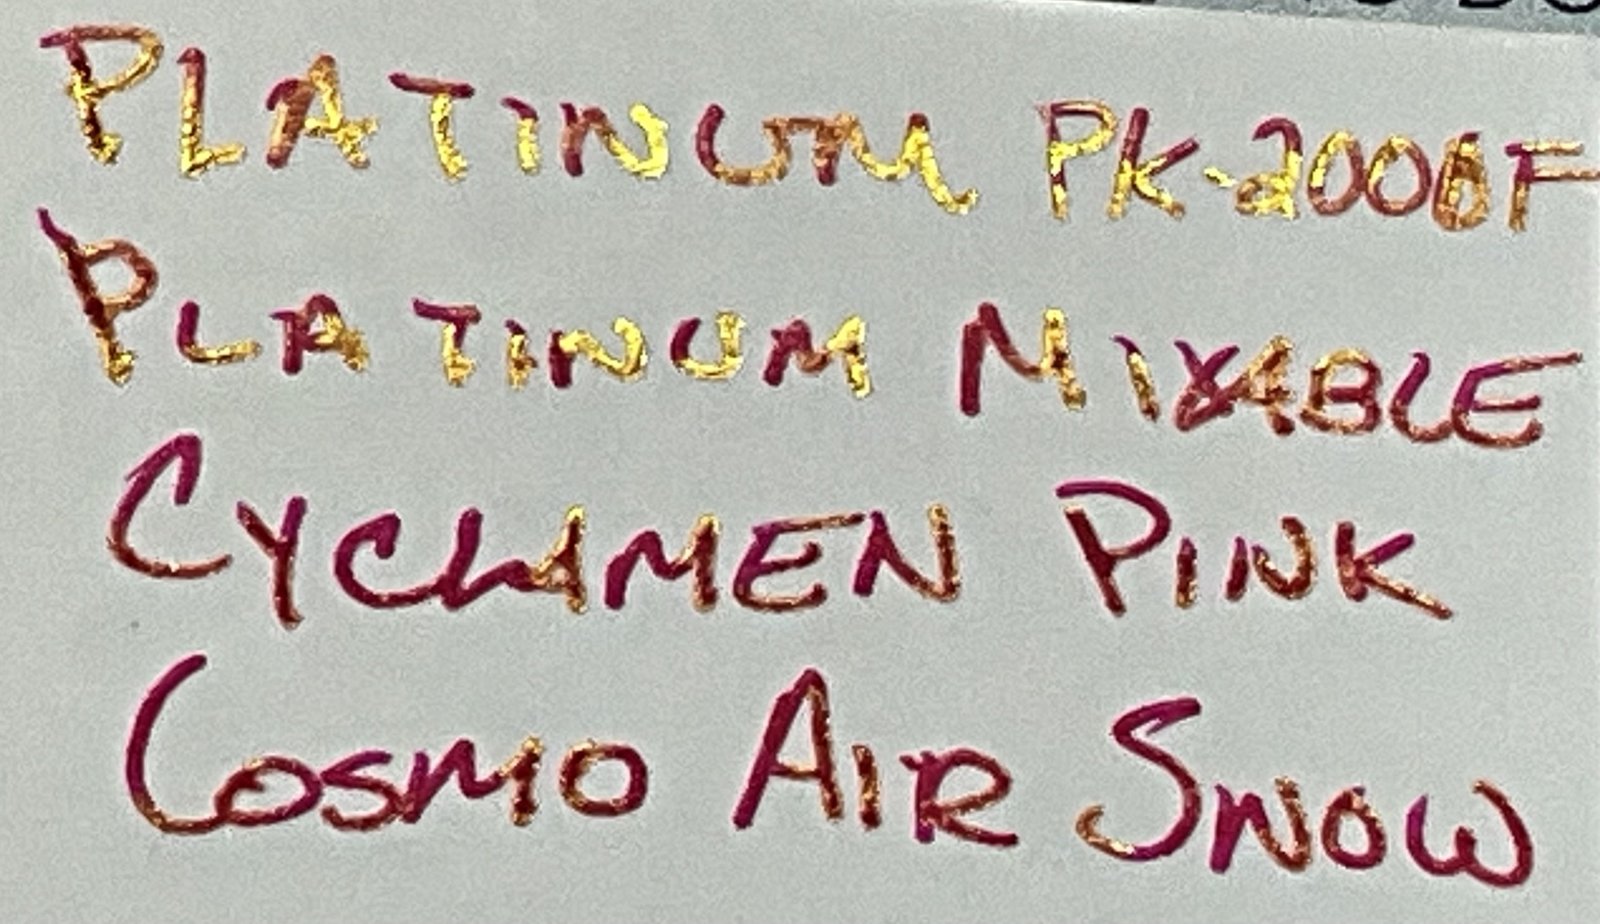 PLATINUM PK-2000F
PLATINUM MIXABLE
CYCLAMEN PINK
COSMO AIR SNOW